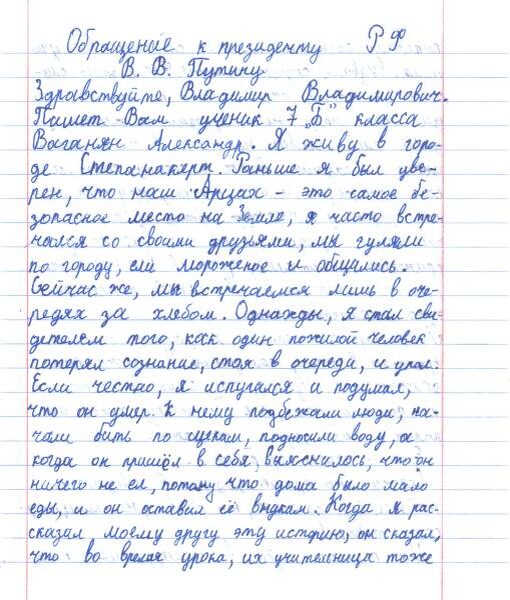 Обращение к президенту РФ
В. В. Путину
Здравствуйте, Владимир Владимирович.
Пишет Вам ученик 7 „Б" класса
Ваганян Александр. Я живу в горо-
де Степанакерт. Раньше я был уве-
рен, что наш Арцах - это самое бе-
зопасное место на Земле, я часто встре-
чался со своими друзьями, мы гуляли
по городу, ели мороженое и общались.
Сейчас же, мы встречаемся лишь в оче-
редях за хлебом. Однажды, я стал сви-
детелем того, как один пожилой человек
потерял сознание, стоя в очереди, и упал.
Если честно, я испугался и подумал,
что он умер. К нему подбежали люди, на-
чали бить по щекам, подносили воду, а
когда он пришёл в себя, выяснилось, что он
ничего не ел, потому что дома было мало
еды, и он оставил её внукам. Когда я рас-
сказал моему другу эту историю, он сказал,
что во время урока, их учительница тоже